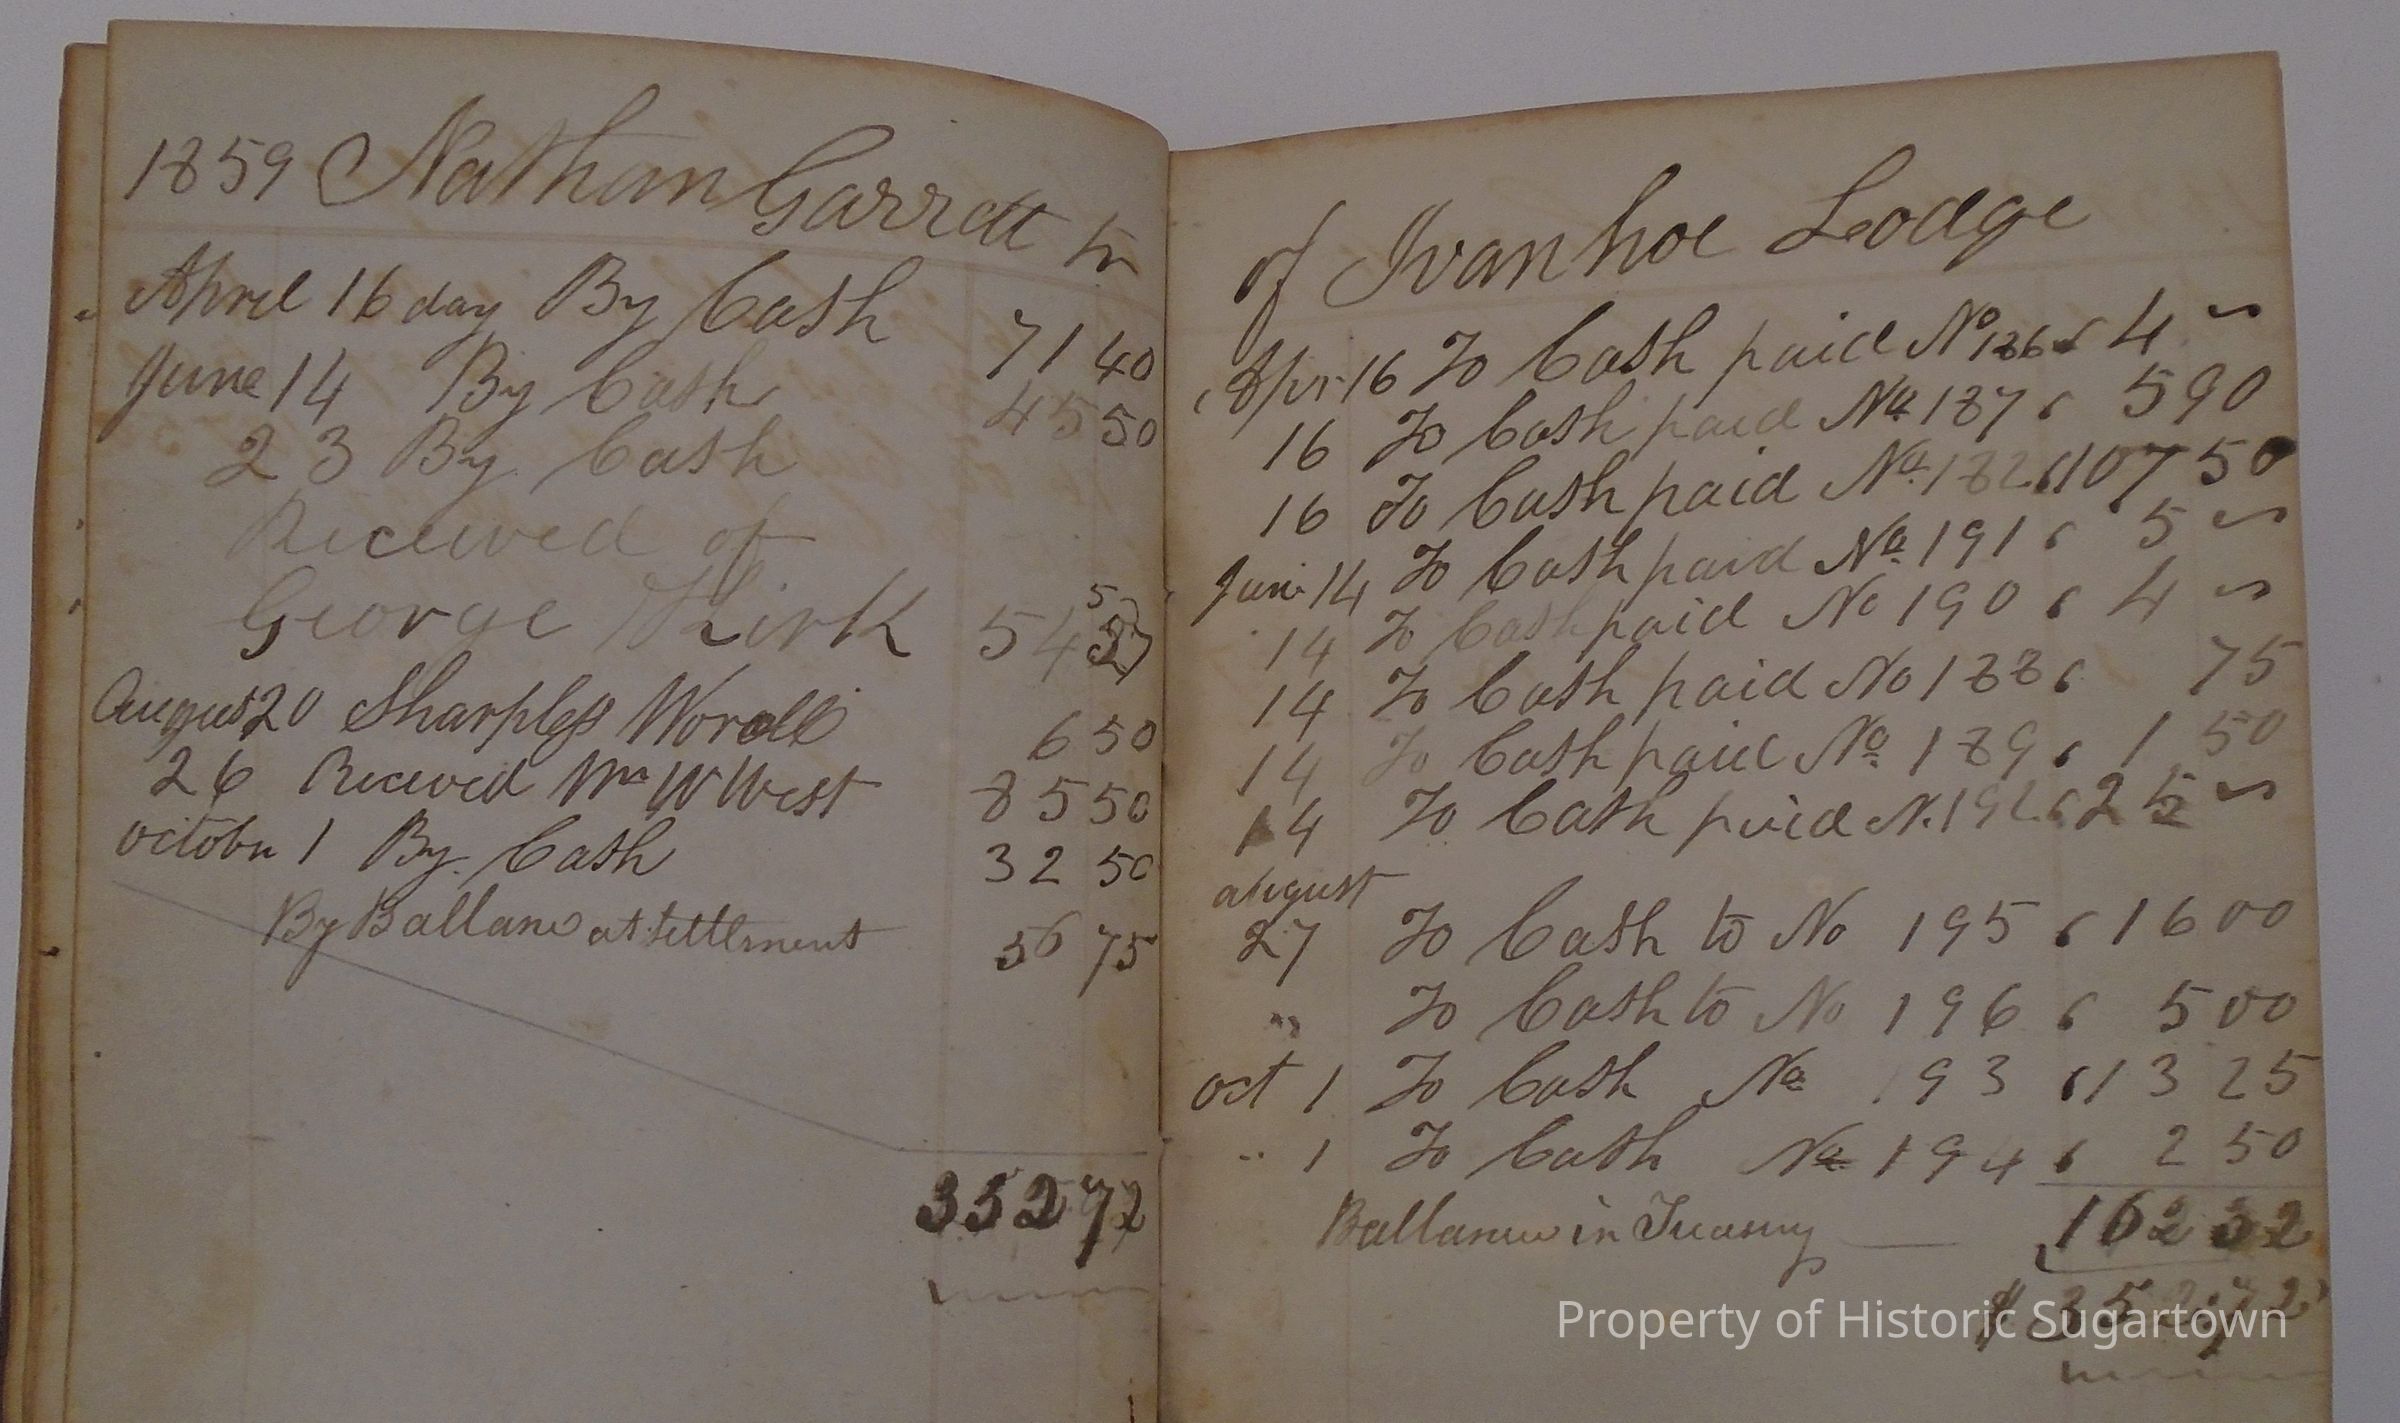 1859 Nathan Garrett Tr
April 16 day By Cash 71 40
June 14 By Cash 45 50
23 By Cash
Received of
George Kirk 54 57
August 20 Sharpless Worall 6 50
26 Received Wm W West 85 50
october 1 By Cash 32 50
By Ballance at settlement 56 75
352 72
of Ivanhoe Lodge
Apr 16 To Cash paid No 186 4 ~
16 To Cash paid No 187 5 90
16 To Cash paid No 182 107 50
June 14 To Cash paid No 191 5 ~
14 To Cash paid No 190 4 ~
14 To Cash paid No 188 75
14 To Cash paid No 189 1 50
14 To Cash paid N. 192 25 ~
august
27 To Cash to No 195 16 00
" To Cash to No 196 5 00
oct 1 To Cash No 193 13 25
" 1 To Cash No 194 2 50
Ballance in Treasury 162 32
$ 352,72
Property of Historic Sugartown